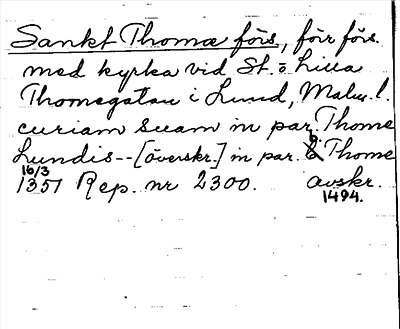 Sankt Thomæ förs, förr förs.
med kyrka vid St. o. Lilla
Thomegatan i Lund, Malm. l.
curiam suam in par. Thome
Lundis -- [överskr.] in par. b. Thome
16/3
1351 Rep. nr 2300. avskr.
1494.